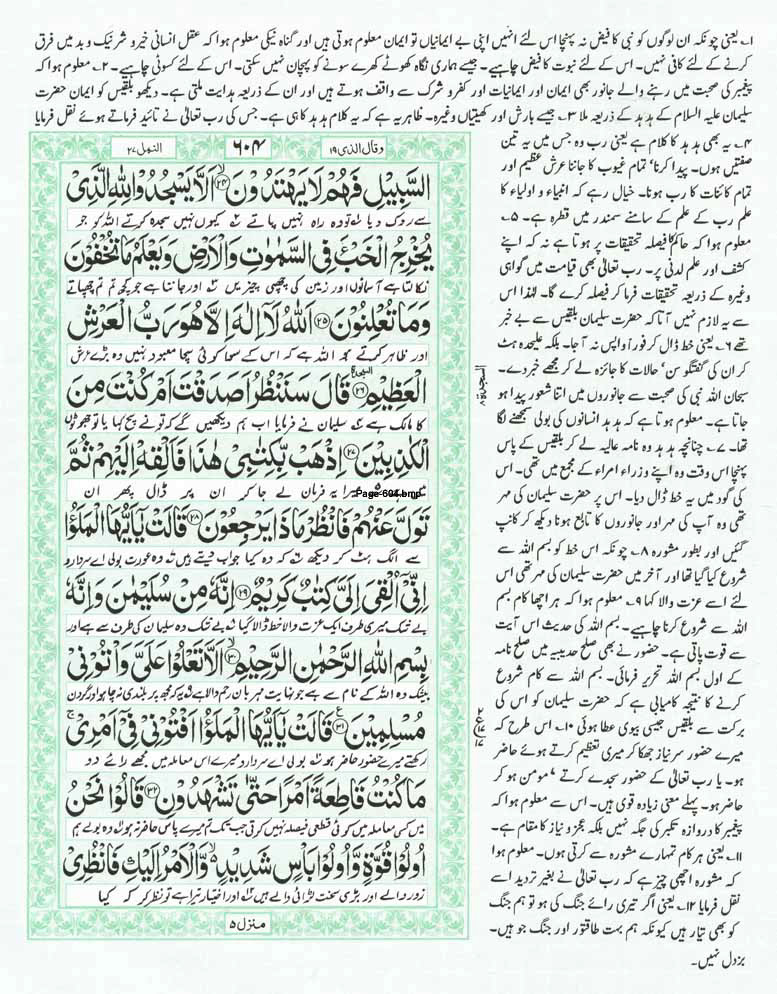 ۱۔ یعنی چونکہ ان لوگوں کو نبی کا فیض نہ پہنچا اس لئے انہیں اپنی بے ایمانیاں تو ایمان معلوم ہوتی ہیں اور گناہ نیکی معلوم ہوا کہ عقل انسانی خیر و شر نیک و بد میں فرق
کرنے کے لئے کافی نہیں۔ اس کے لئے نبوت کا فیض چاہیے۔ جیسے ہماری نگاہ کھوٹے کھرے سونے کو پہچان نہیں سکتی۔ اس کے لئے کسوٹی چاہیے۔ ۲۔ معلوم ہوا کہ
پیغمبر کی صحبت میں رہنے والے جانور بھی ایمان اور ایمانیات اور کفر و شرک سے واقف ہوتے ہیں اور ان کے ذریعہ ہدایت ملتی ہے۔ دیکھو بلقیس کو ایمان حضرت
سلیمان علیہ السلام کے ہدہد کے ذریعہ ملا ۳۔ جیسے بارش اور کھیتیاں وغیرہ۔ ظاہر یہ ہے کہ یہ کلام ہدہد کا ہی ہے۔ جس کی رب تعالیٰ نے تائید فرماتے ہوئے نقل فرمایا
۴۔ یہ بھی ہدہد کا کلام ہے یعنی رب وہ جس میں یہ تین
صفتیں ہوں۔ پیدا کرنا' تمام غیوب کا جاننا عرش عظیم اور
تمام کائنات کا رب ہونا۔ خیال رہے کہ انبیاء و اولیاء کا
علم رب کے علم کے سامنے سمندر میں قطرہ ہے۔ ۵۔
معلوم ہوا کہ حاکم کا فیصلہ تحقیقات پر ہوتا ہے نہ کہ اپنے
کشف اور علم لدنی پر۔ رب تعالیٰ بھی قیامت میں گواہی
وغیرہ کے ذریعہ تحقیقات فرما کر فیصلہ کرے گا۔ لہٰذا اس
سے یہ لازم نہیں آتا کہ حضرت سلیمان بلقیس سے بے خبر
تھے ۶۔ یعنی خط ڈال کر فوراً واپس نہ آ جا۔ بلکہ علیحدہ ہٹ
کر ان کی گفتگو سن' حالات کا جائزہ لے کر مجھے خبر دے۔
سبحان اللہ نبی کی صحبت سے جانوروں میں اتنا شعور پیدا ہو
جاتا ہے۔ معلوم ہوتا ہے کہ ہدہد انسانوں کی بولی سمجھنے لگا
تھا۔ ۷۔ چنانچہ ہدہد وہ نامہ عالیہ لے کر بلقیس کے پاس
پہنچا اس وقت وہ اپنے وزراء امراء کے مجمع میں تھی۔ اس
کی گود میں یہ خط ڈال دیا۔ اس پر حضرت سلیمان کی مہر
تھی وہ آپ کی مہر اور جانوروں کا تابع ہونا دیکھ کر کانپ
گئیں اور بطور مشورہ ۸۔ چونکہ اس خط کو بسم اللہ سے
شروع کیا گیا تھا اور آخر میں حضرت سلیمان کی مہر تھی اس
لئے اسے عزت والا کہا ۹۔ معلوم ہوا کہ ہر اچھا کام بسم
اللہ سے شروع کرنا چاہیے۔ بسم اللہ کی حدیث اس آیت
سے قوت پاتی ہے۔ حضور نے بھی صلح حدیبیہ میں صلح نامہ
کے اول بسم اللہ تحریر فرمائی۔ بسم اللہ سے کام شروع
کرنے کا نتیجہ کامیابی ہے کہ حضرت سلیمان کو اس کی
برکت سے بلقیس جیسی بیوی عطا ہوئی ۱۰۔ اس طرح کہ
میرے حضور سر نیاز جھکا کر میری تعظیم کرتے ہوئے حاضر
ہو۔ یا رب تعالیٰ کے حضور سجدے کرتے' مومن ہو کر
حاضر ہو۔ پہلے معنی زیادہ قوی ہیں۔ اس سے معلوم ہوا کہ
پیغمبر کا دروازہ تکبر کی جگہ نہیں بلکہ عجز و نیاز کا مقام ہے۔
۱۱۔ یعنی ہر کام تمہارے مشورہ سے کرتی ہوں۔ معلوم ہوا
کہ مشورہ اچھی چیز ہے کہ رب تعالیٰ نے بغیر تردید اسے
نقل فرمایا ۱۲۔ یعنی اگر تیری رائے جنگ کی ہو تو ہم جنگ
کو بھی تیار ہیں کیونکہ ہم بہت طاقتور اور جنگ جو ہیں۔
بزدل نہیں۔
وقال الذی ۱۹ ۶۰۴ النمل ۲۷
السَّبِيْلِ فَهُمْ لَا يَهْتَدُوْنَ ۙ۲۴ اَلَّا يَسْجُدُوْا لِلّٰهِ الَّذِيْ
سے روک دیا تو وہ راہ نہیں پاتے کیوں نہیں سجدہ کرتے اللہ کو جو
يُخْرِجُ الْخَبْءَ فِي السَّمٰوٰتِ وَالْاَرْضِ وَيَعْلَمُ مَا تُخْفُوْنَ
نکالتا ہے آسمانوں اور زمین کی چھپی چیزیں اور جانتا ہے جو کچھ تم چھپاتے
وَمَا تُعْلِنُوْنَ ۲۵ اَللّٰهُ لَا اِلٰهَ اِلَّا هُوَ رَبُّ الْعَرْشِ
اور ظاہر کرتے اللہ ہے کہ اس کے سوا کوئی سچا معبود نہیں وہ بڑے عرش
السجدة
الْعَظِيْمِ ۲۶ قَالَ سَنَنْظُرُ اَصَدَقْتَ اَمْ كُنْتَ مِنَ
کا مالک ہے سلیمان نے فرمایا اب ہم دیکھیں گے کہ تو نے سچ کہا یا تو جھوٹوں
السجدة ۸
الْكٰذِبِيْنَ ۲۷ اِذْهَبْ بِّكِتٰبِيْ هٰذَا فَاَلْقِهْ اِلَيْهِمْ ثُمَّ
میں ہے میرا یہ فرمان لے جا کر ان پر ڈال پھر ان
Page-604.bmp
تَوَلَّ عَنْهُمْ فَانْظُرْ مَاذَا يَرْجِعُوْنَ ۲۸ قَالَتْ يٰۤاَيُّهَا الْمَلَؤُا
سے الگ ہٹ کر دیکھ کہ وہ کیا جواب دیتے ہیں وہ عورت بولی اے سردارو
اِنِّيْۤ اُلْقِيَ اِلَيَّ كِتٰبٌ كَرِيْمٌ ۲۹ اِنَّهٗ مِنْ سُلَيْمٰنَ وَاِنَّهٗ
بے شک میری طرف ایک عزت والا خط ڈالا گیا بے شک وہ سلیمان کی طرف سے ہے اور
بِسْمِ اللّٰهِ الرَّحْمٰنِ الرَّحِيْمِ ۙ۳۰ اَلَّا تَعْلُوْا عَلَيَّ وَاْتُوْنِيْ
بیشک وہ اللہ کے نام سے ہے جو نہایت مہربان رحم والا ہے یہ کہ مجھ پر بلندی نہ چاہو اور گردن
مُسْلِمِيْنَ ۳۱ قَالَتْ يٰۤاَيُّهَا الْمَلَؤُا اَفْتُوْنِيْ فِيْۤ اَمْرِيْ ۚ
رکھتے میرے حضور حاضر ہو بولی اے سردارو میرے اس معاملہ میں مجھے رائے دو
ع ۲ ۱۷ ۱۷
مَا كُنْتُ قَاطِعَةً اَمْرًا حَتّٰى تَشْهَدُوْنِ ۳۲ قَالُوْا نَحْنُ
میں کسی معاملہ میں کوئی قطعی فیصلہ نہیں کرتی جب تک تم میرے پاس حاضر نہ ہو وہ بولے ہم
اُولُوْا قُوَّةٍ وَّاُولُوْا بَاْسٍ شَدِيْدٍ ۙ۬ وَّالْاَمْرُ اِلَيْكِ فَانْظُرِيْ
زور والے اور بڑی سخت لڑائی والے ہیں اور اختیار تیرا ہے تو نظر کر کہ کیا
منزل ۵